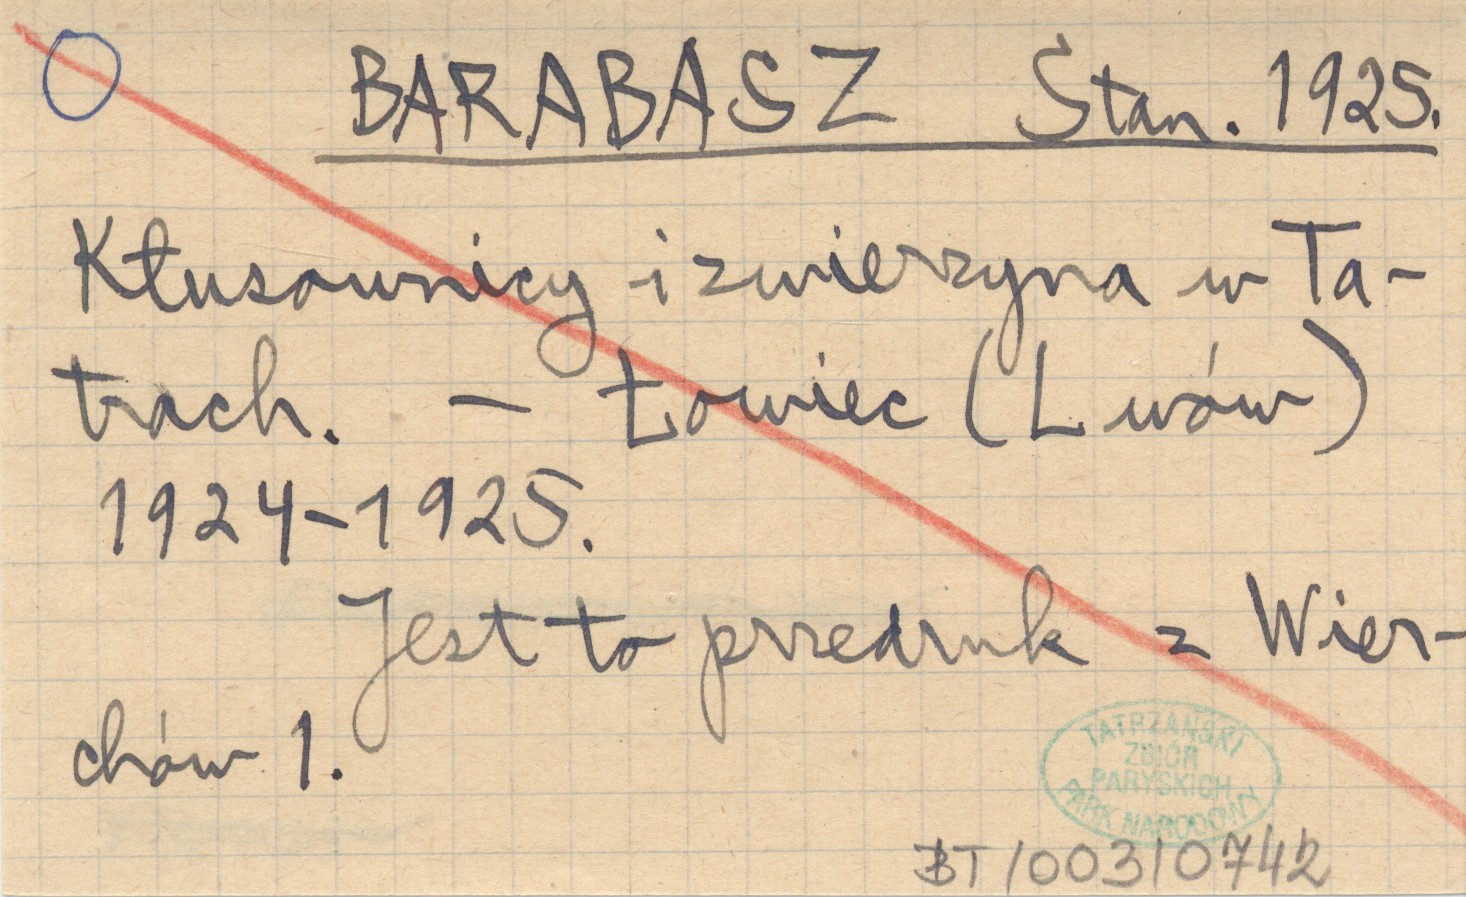 BARABASZ Stan. 1925.
Kłusownicy i zwierzyna w Ta-
trach. — Łowiec (Lwów)
1924-1925.
Jest to przedruk z Wier-
chów 1.
TATRZAŃSKI
ZBIÓR
PARYSKICH
PARK NARODOWY
BT/00310742